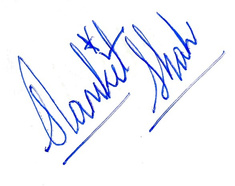 Sanket Shah